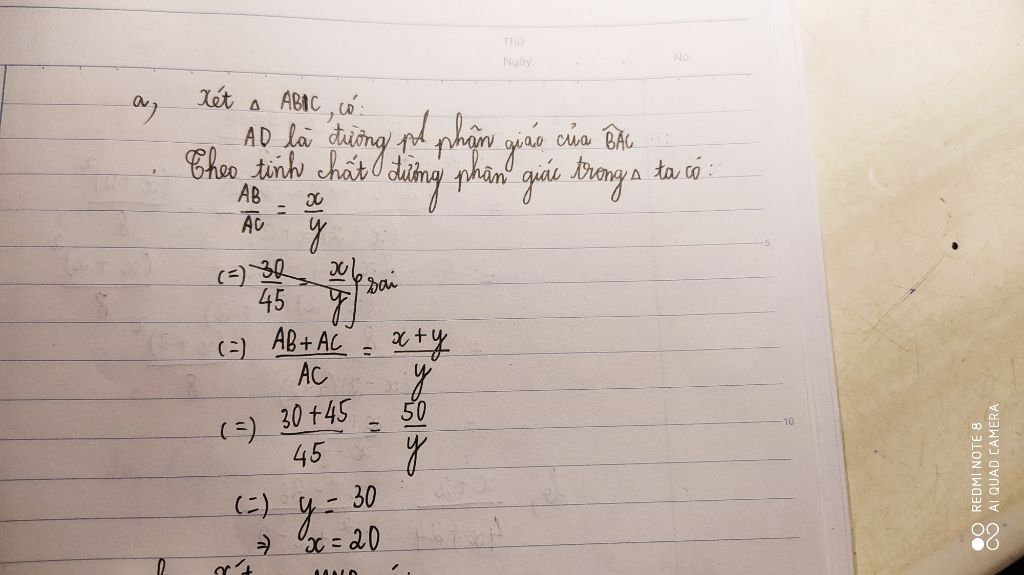 Thứ
Ngày No.
a, Xét △ ABC, có:
AD là đường pt phân giác của BAC
. Theo tính chất đường phân giác trong △ ta có:
AB/AC = x/y
(=) 30/45 = x/y } sai
5
(=) (AB + AC)/AC = (x + y)/y
(=) (30 + 45)/45 = 50/y
10
(=) y = 30
⇒ x = 20
xét
REDMI NOTE 8
AI QUAD CAMERA